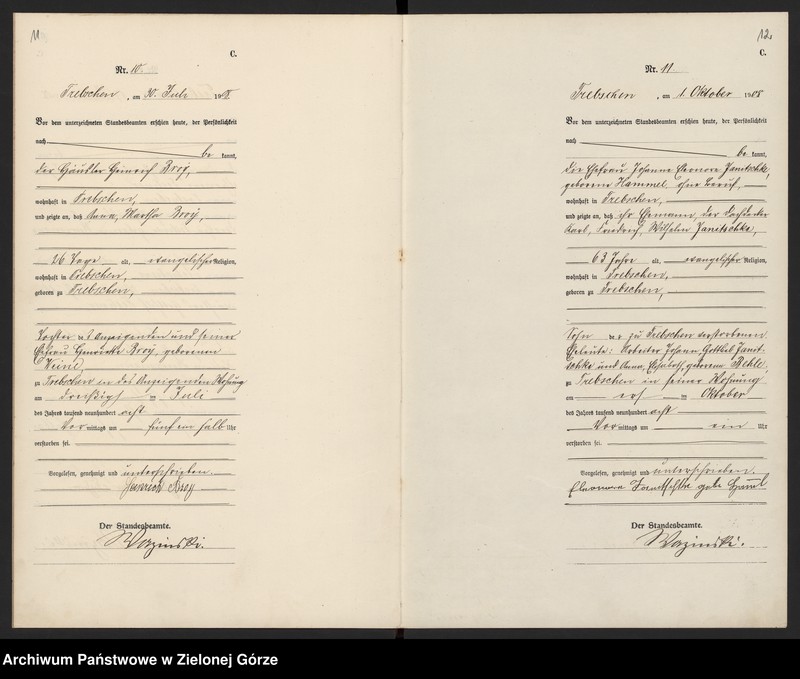 11
C.
Nr. 10.
Trebschen, am 30. Juli 1908
Vor dem unterzeichneten Standesbeamten erschien heute, der Persönlichkeit
nach
be kannt,
der Häusler Heinrich
wohnhaft in Trebschen,
und zeigte an, daß Anna, Martha
26 Tage alt, evangelischer Religion,
wohnhaft in Trebschen,
geboren zu Trebschen,
Tochter des Anzeigenden und seiner
Ehefrau geborenen
zu Trebschen in des Anzeigenden Wohnung
am dreißigsten Juli
des Jahres tausend neunhundert acht
Vor mittags um fünf ein halb Uhr
verstorben sei.
Vorgelesen, genehmigt und unterschrieben.
Heinrich
Der Standesbeamte.
12.
C.
Nr. 11
Trebschen, am 1. Oktober 1908
Vor dem unterzeichneten Standesbeamten erschien heute, der Persönlichkeit
nach
be kannt,
die Ehefrau Johanne Eleonore Janitschke,
geborene Hammel, ohne Beruf,
wohnhaft in Trebschen,
und zeigte an, daß ihr Ehemann, der Dachdecker
Karl, Friedrich, Wilhelm Janitschke,
63 Jahre alt, evangelischer Religion,
wohnhaft in Trebschen,
geboren zu Trebschen,
Sohn der zu Trebschen verstorbenen
Eheleute: Arbeiter Johann, Gottlieb Janit-
schke und Anna, geborene
zu Trebschen in seiner Wohnung
am ersten Oktober
des Jahres tausend neunhundert acht
Vor mittags um ein Uhr
verstorben sei.
Vorgelesen, genehmigt und unterschrieben.
Eleonore Janitschke geb.
Der Standesbeamte.
Archiwum Państwowe w Zielonej Górze